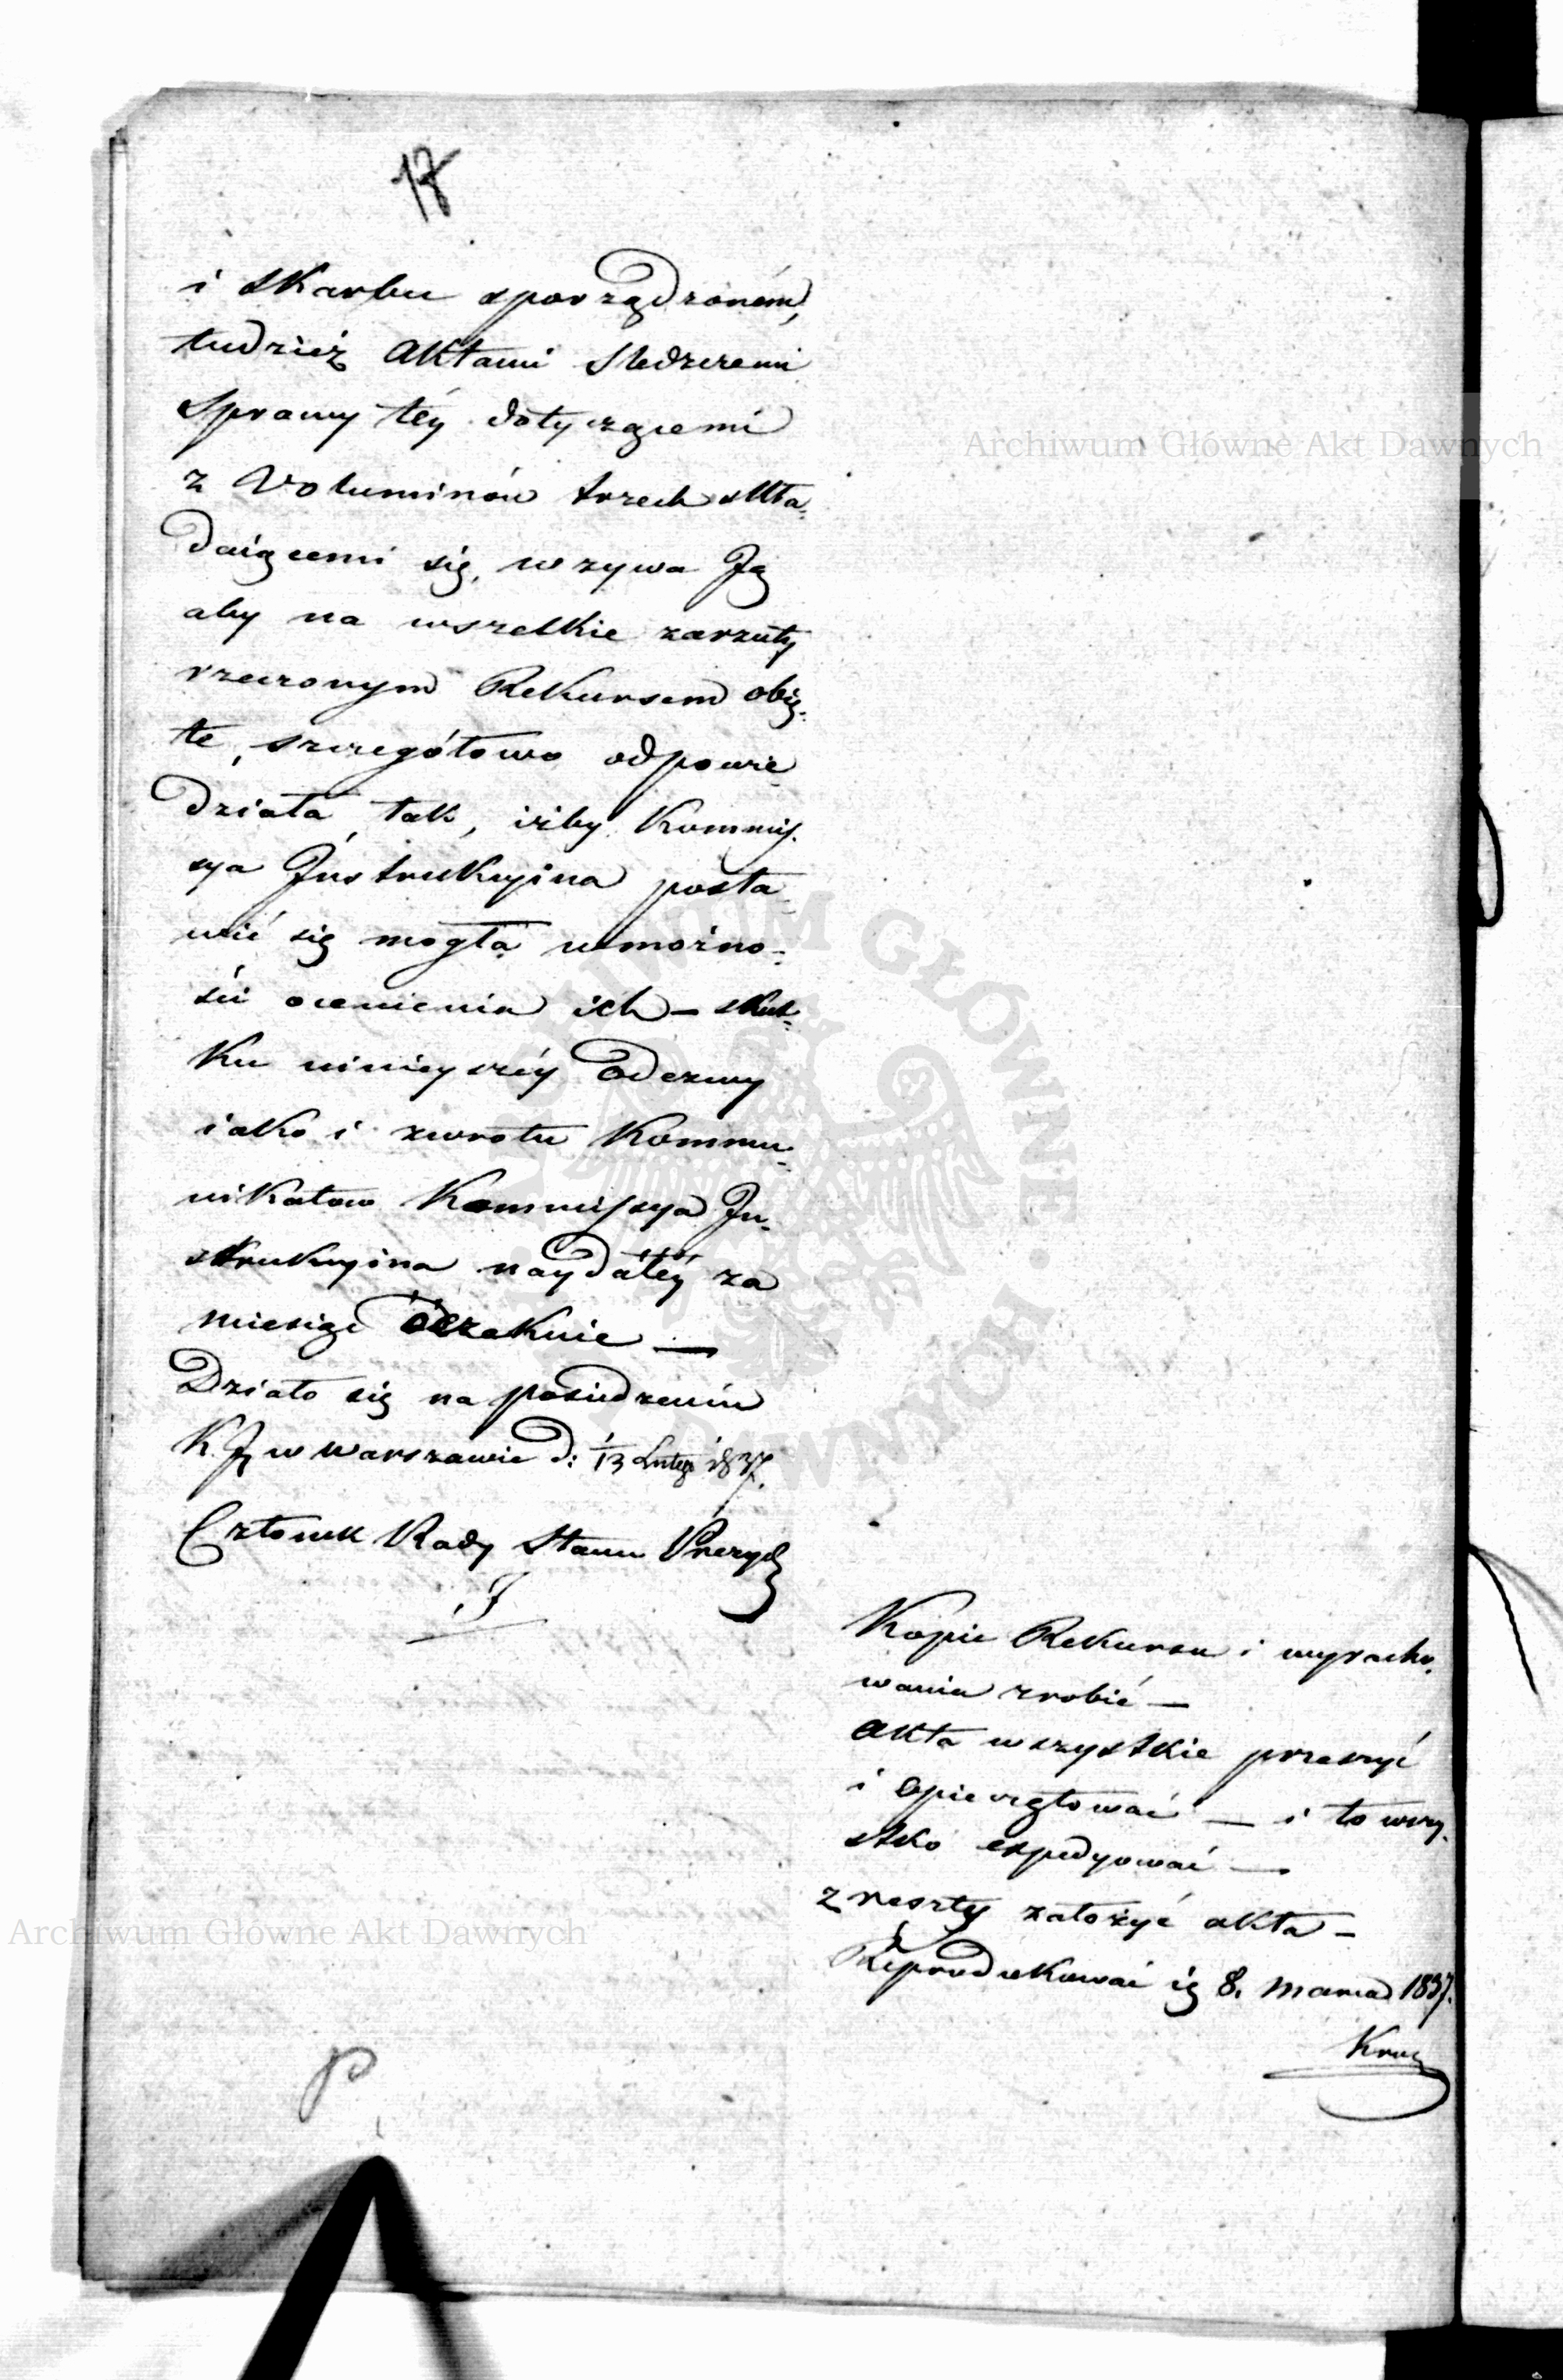 17
i Skarbu sporządzoném,
tudzież Aktami śledczemi
Sprawy téy dotyczącemi
z Voluminów trzech skła-
daiącemi się, wzywa Ją
aby na wszelkie zarzuty
rzeczonym Rekursem obię-
te, szczegółowo odpowie-
działa, tak, iżby Kommis-
sya Instrukcyina posta-
wić się mogła w możno-
ści ocenienia ich – skut-
ku ninieyszéy Odezwy
iako i zwrotu Kommu-
nikatow Kommissya In-
strukcyina naydáléy za
miesiąc oczekuie —
Działo się na posiedzeniu
K. J. w Warszawie d: 1/13 Lutego 1837.
Członek Rady Stanu Prezyd
Archiwum Główne Akt Dawnych
Kopie Rekursu i wyracho-
wania zrobić —
Akta wszystkie przeszyć
i opieczętować — i to wszy-
stko expedyować —
z reszty założyć akta –
Reprodukować ią 8. Marca 1837.
Archiwum Główne Akt Dawnych
P
ARCHIWUM GŁÓWNE AKT DAWNYCH